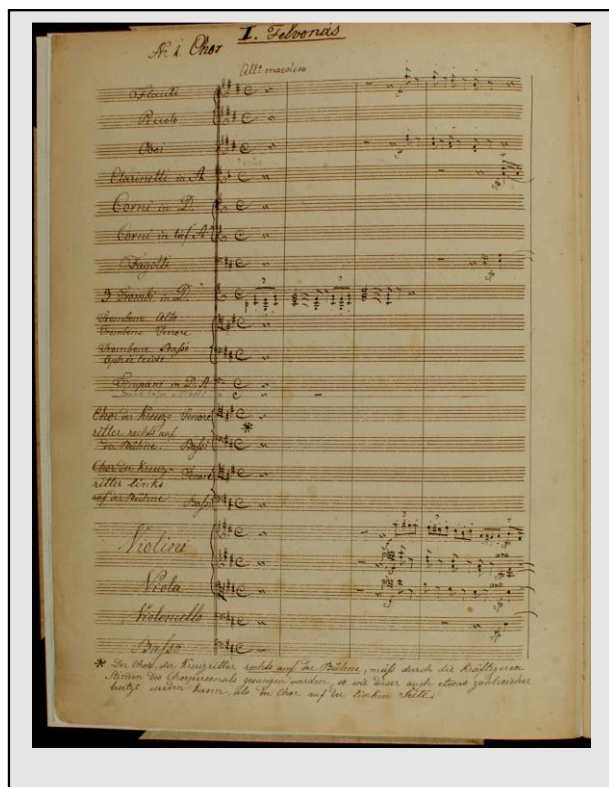 I. Felvonás
No. 1. Chor
Allo. maestoso
Flauti
Piccolo
Oboi
Clarinetti in A
Corni in D.
Corni in tief A
Fagotti
3 Trombi in D.
Trombone Alto
Trombone Tenore
Trombone Basso
Ophicleide
Timpani in D. A
Chor der Kreuz- Tenore
ritter rechts auf
der Bühne. Bassi
Chor der Kreuz- Tenore
ritter links
auf der Bühne Bassi
Violini
Viola
Violoncello
Basso
* Der Chor der Kreuzritter rechts auf der Bühne, muß durch die kräftigeren
Stimmen des Chorpersonals gesungen werden, so wie dieser auch etwas zahlreicher
besetzt werden kann, als der Chor auf der linken Seite.